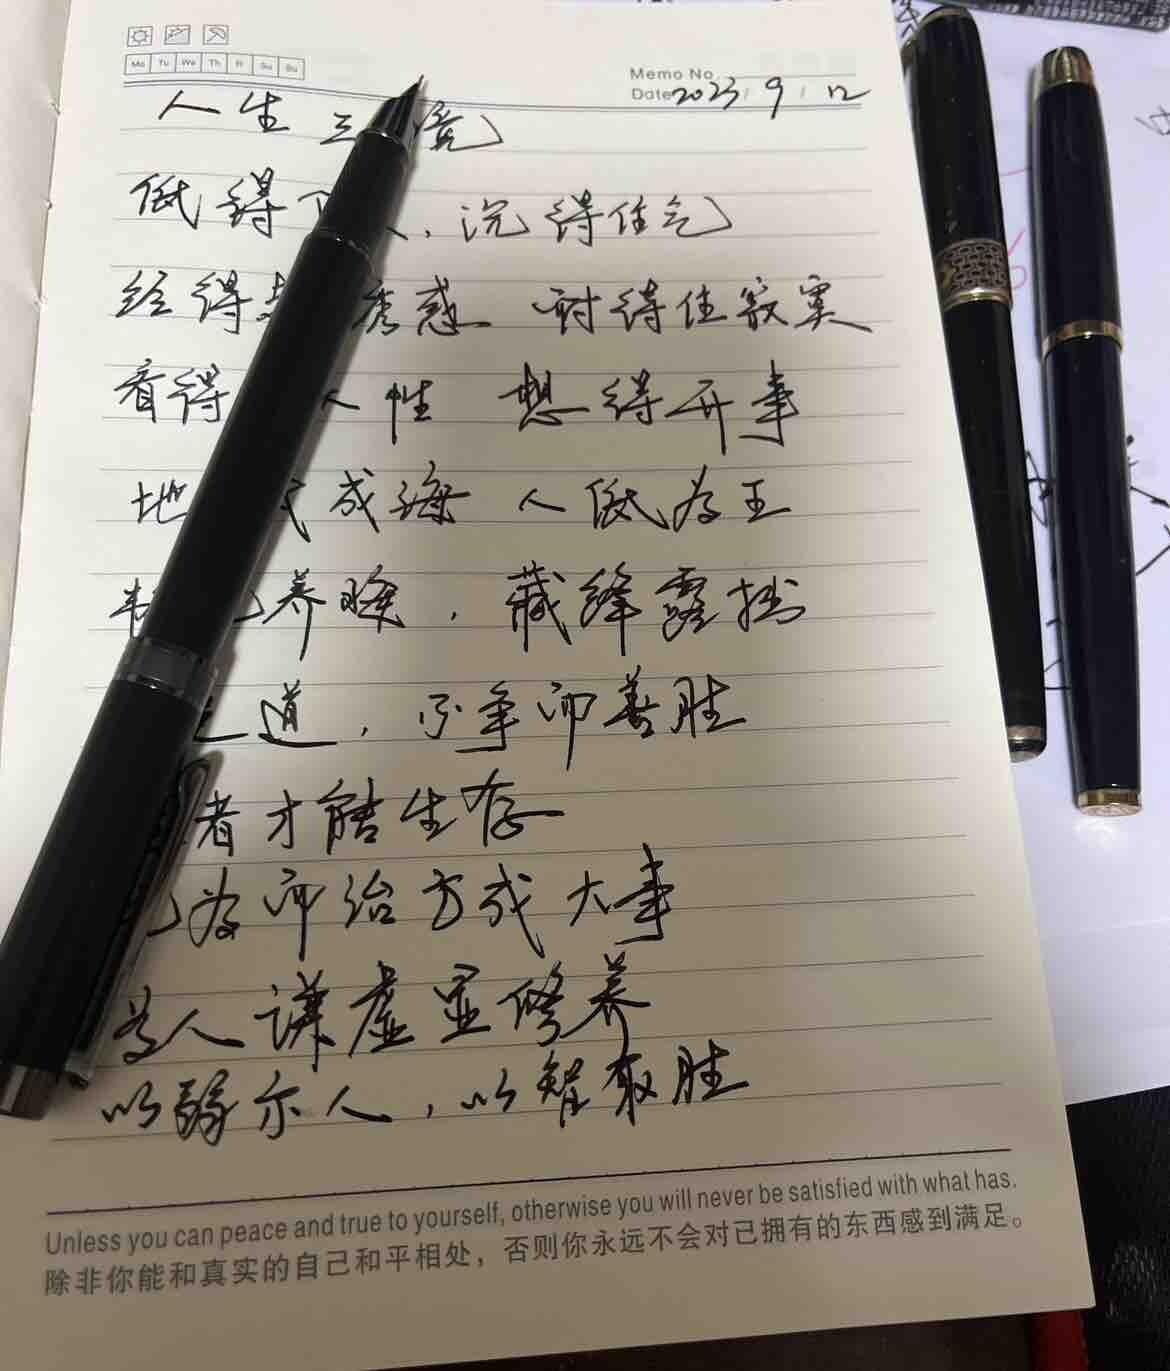 Mo Tu We Th Fr Sa Su
Memo No.
Date 2023 / 9 / 12
人生三境
低得下,沉得住气
经得 诱惑 耐得住寂寞
看得 人性 想得开事
地 成海 人低为王
养晦,藏锋露拙
之道,不争而善胜
者才能生存
为而治方成大事
为人谦虚显修养
以弱示人,以智取胜
Unless you can peace and true to yourself, otherwise you will never be satisfied with what has.
除非你能和真实的自己和平相处,否则你永远不会对已拥有的东西感到满足。